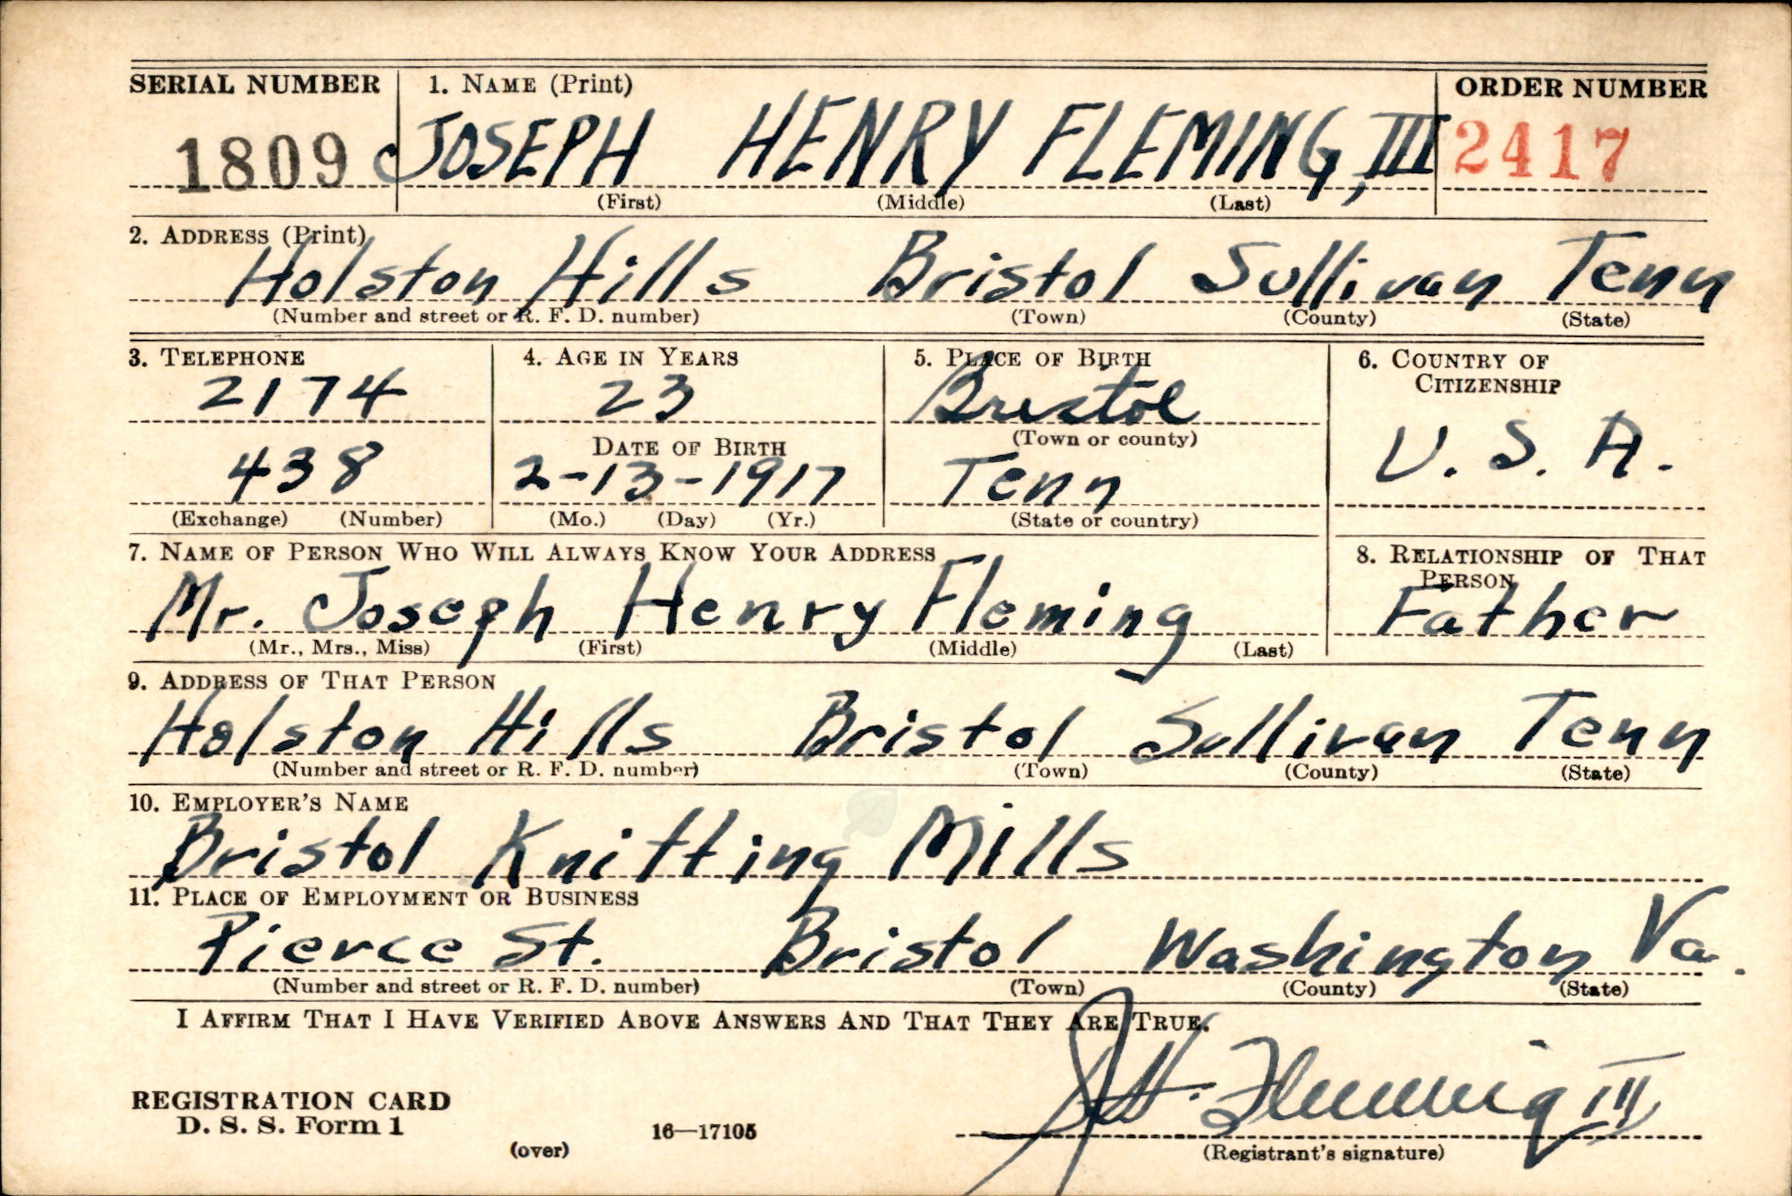 SERIAL NUMBER 1. NAME (Print) ORDER NUMBER
1809 JOSEPH HENRY FLEMING, III 2417
(First) (Middle) (Last)
2. ADDRESS (Print)
Holston Hills Bristol Sullivan Tenn
(Number and street or R. F. D. number) (Town) (County) (State)
3. TELEPHONE 4. AGE IN YEARS 5. PLACE OF BIRTH 6. COUNTRY OF
CITIZENSHIP
2174 23 Bristol
(Town or county)
DATE OF BIRTH
U. S. A.
438 2-13-1917 Tenn
(Exchange) (Number) (Mo.) (Day) (Yr.) (State or country)
7. NAME OF PERSON WHO WILL ALWAYS KNOW YOUR ADDRESS 8. RELATIONSHIP OF THAT
PERSON
Mr. Joseph Henry Fleming Father
(Mr., Mrs., Miss) (First) (Middle) (Last)
9. ADDRESS OF THAT PERSON
Holston Hills Bristol Sullivan Tenn
(Number and street or R. F. D. number) (Town) (County) (State)
10. EMPLOYER'S NAME
Bristol Knitting Mills
11. PLACE OF EMPLOYMENT OR BUSINESS
Pierce St. Bristol Washington Va.
(Number and street or R. F. D. number) (Town) (County) (State)
I AFFIRM THAT I HAVE VERIFIED ABOVE ANSWERS AND THAT THEY ARE TRUE.
REGISTRATION CARD
D. S. S. Form 1 J. H. Fleming III
(over) 16—17105 (Registrant's signature)